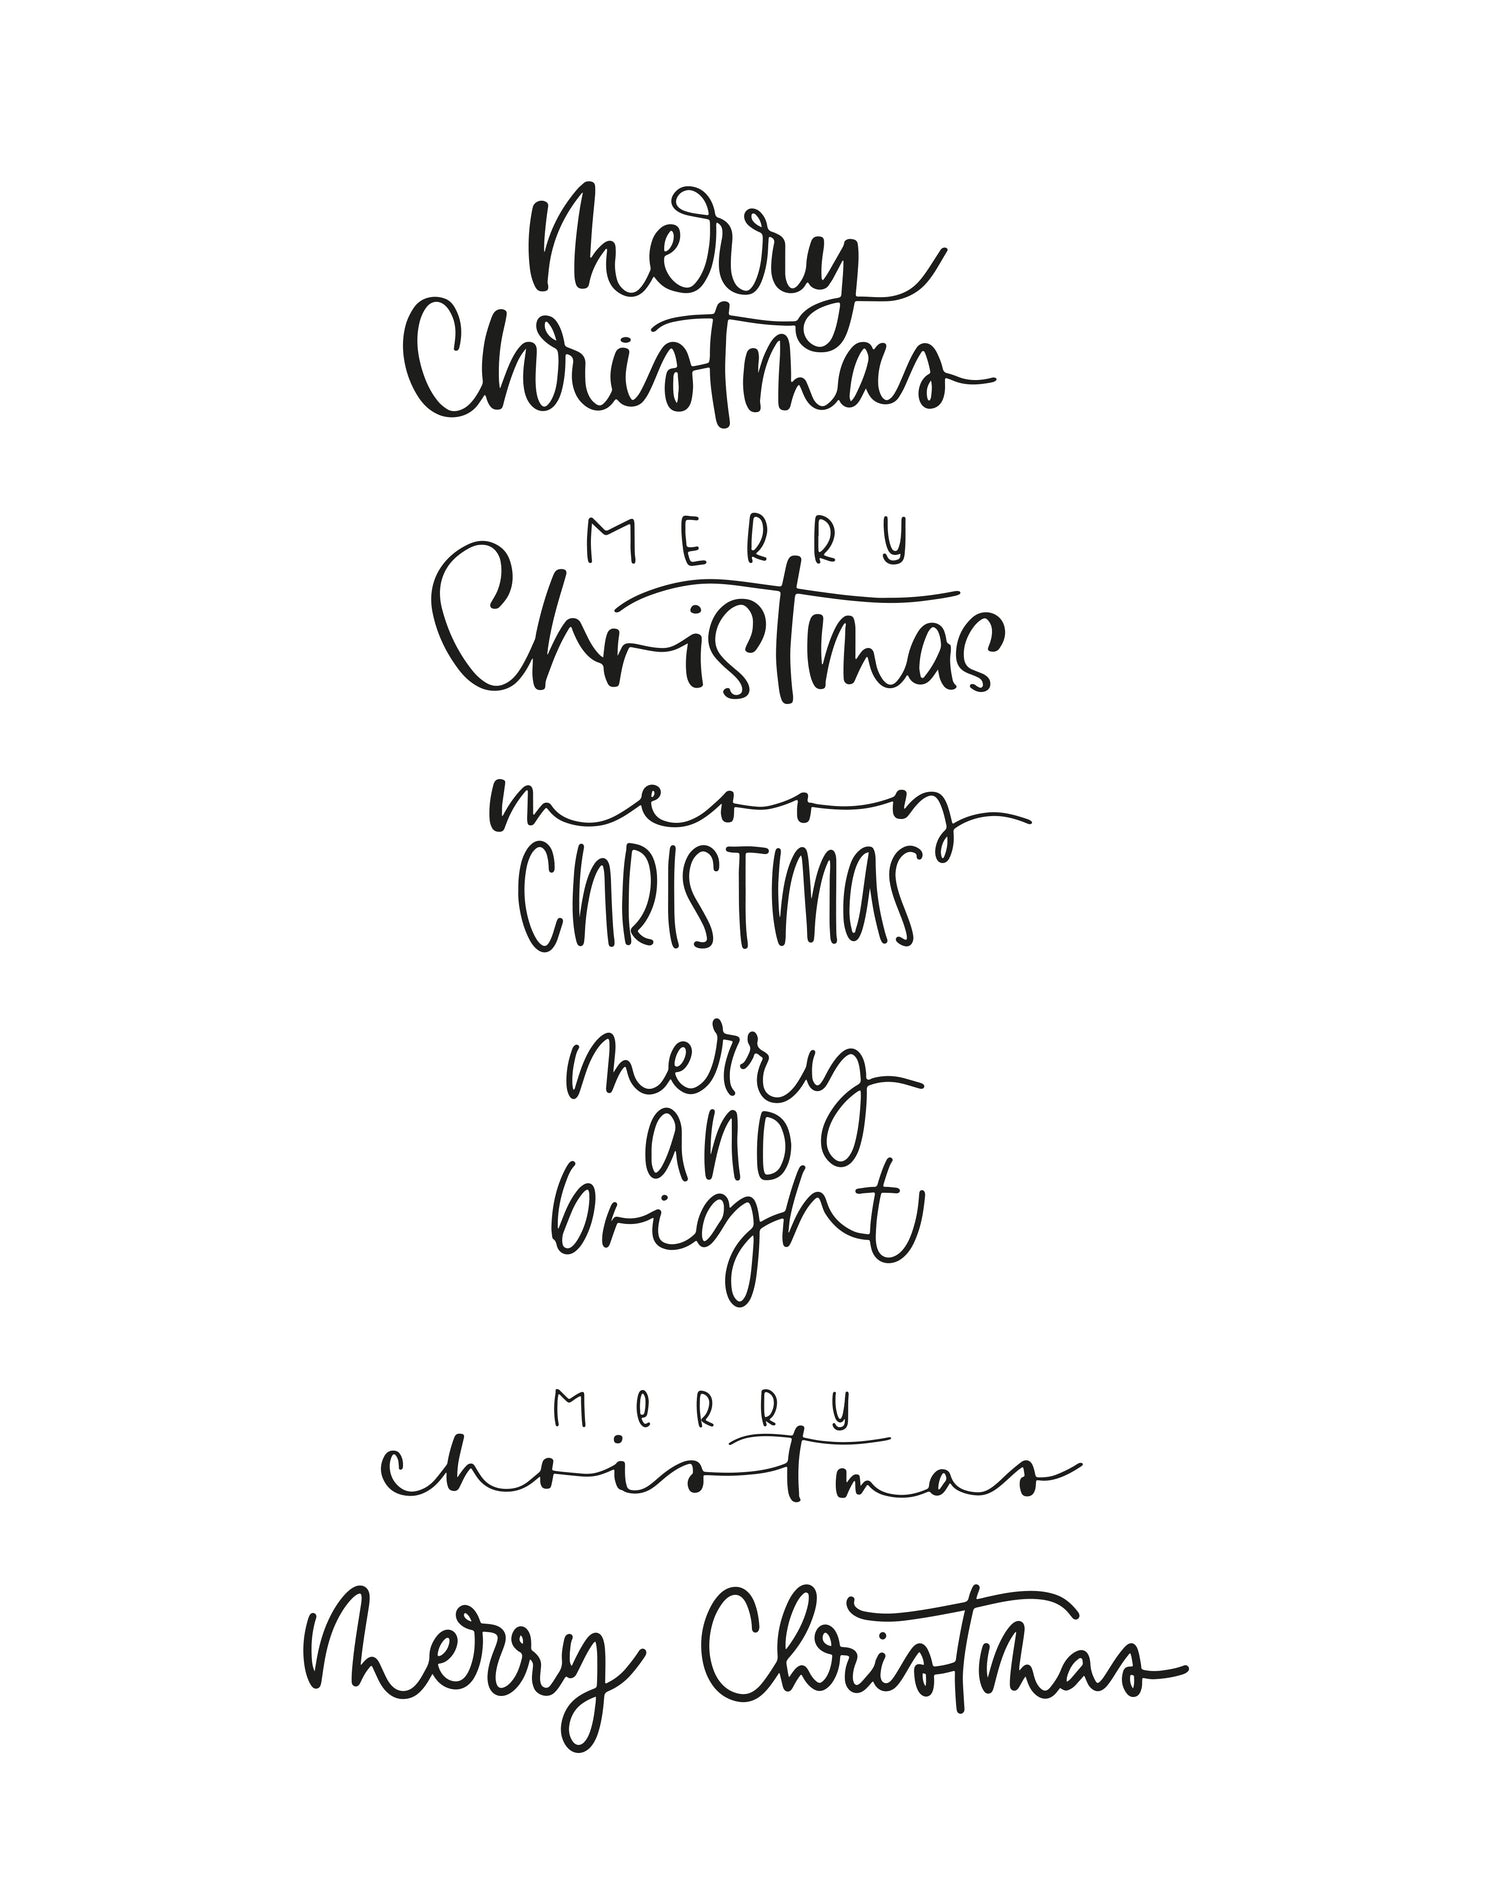 Merry
Christmas
MERRY
Christmas
merry
CHRISTMAS
merry
AND
bright
MeRRY
christmas
Merry Christmas